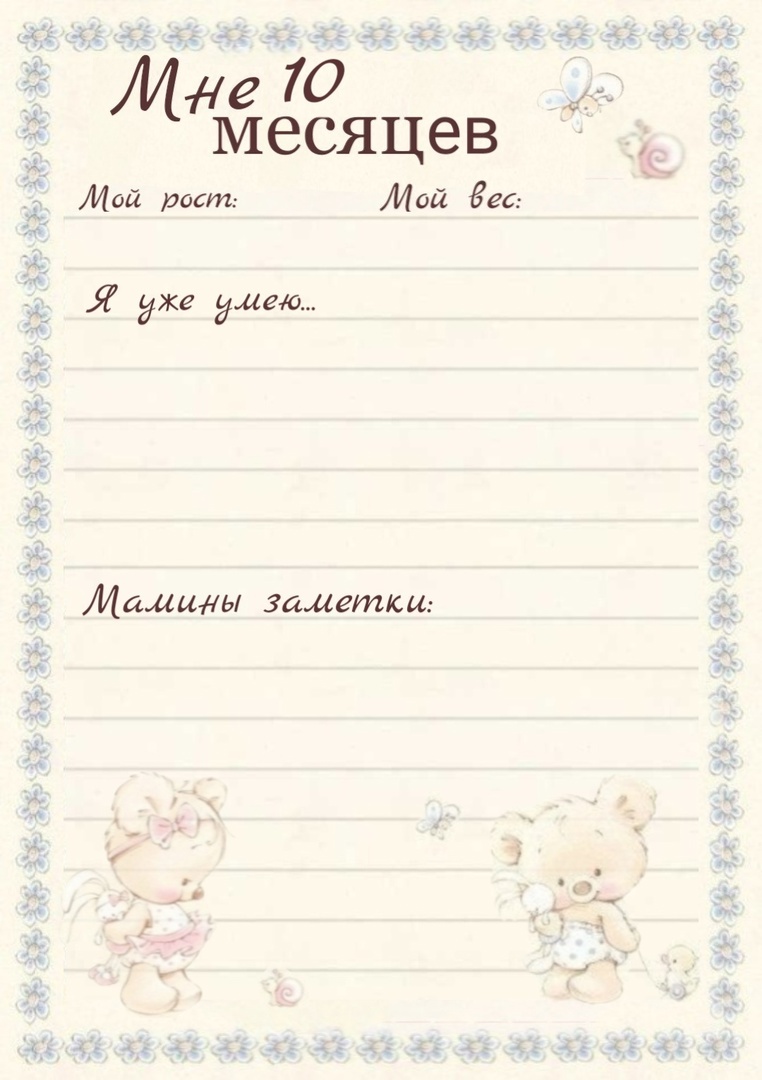 Мне 10
месяцев
Мой рост: Мой вес:
Я уже умею...
Мамины заметки: